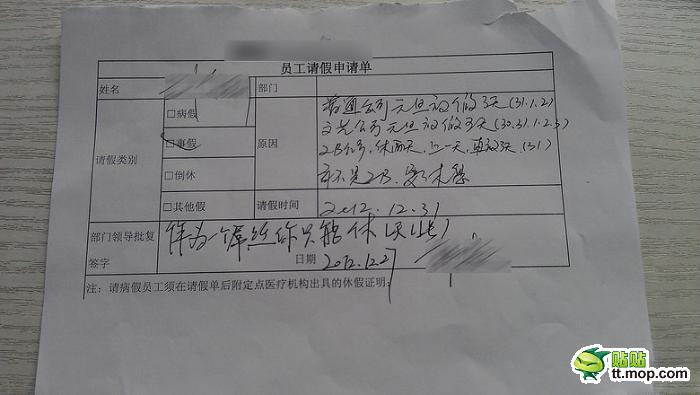 员工请假申请单
姓名
部门
请假类别
□病假
□事假
□倒休
□其他假
原因
普通公司元旦放假3天(31.1.2)
文艺公司元旦放假5天(30.31.1.2.3)
2B公司,休两天,上一天,再放3天(31)
我不是2B,要求休息
请假时间
2012.12.31
部门领导批复
签字
作为一个屌丝你只能休
日期
2012.12.27
注:请病假员工须在请假单后附定点医疗机构出具的休假证明;
贴贴
tt.mop.com